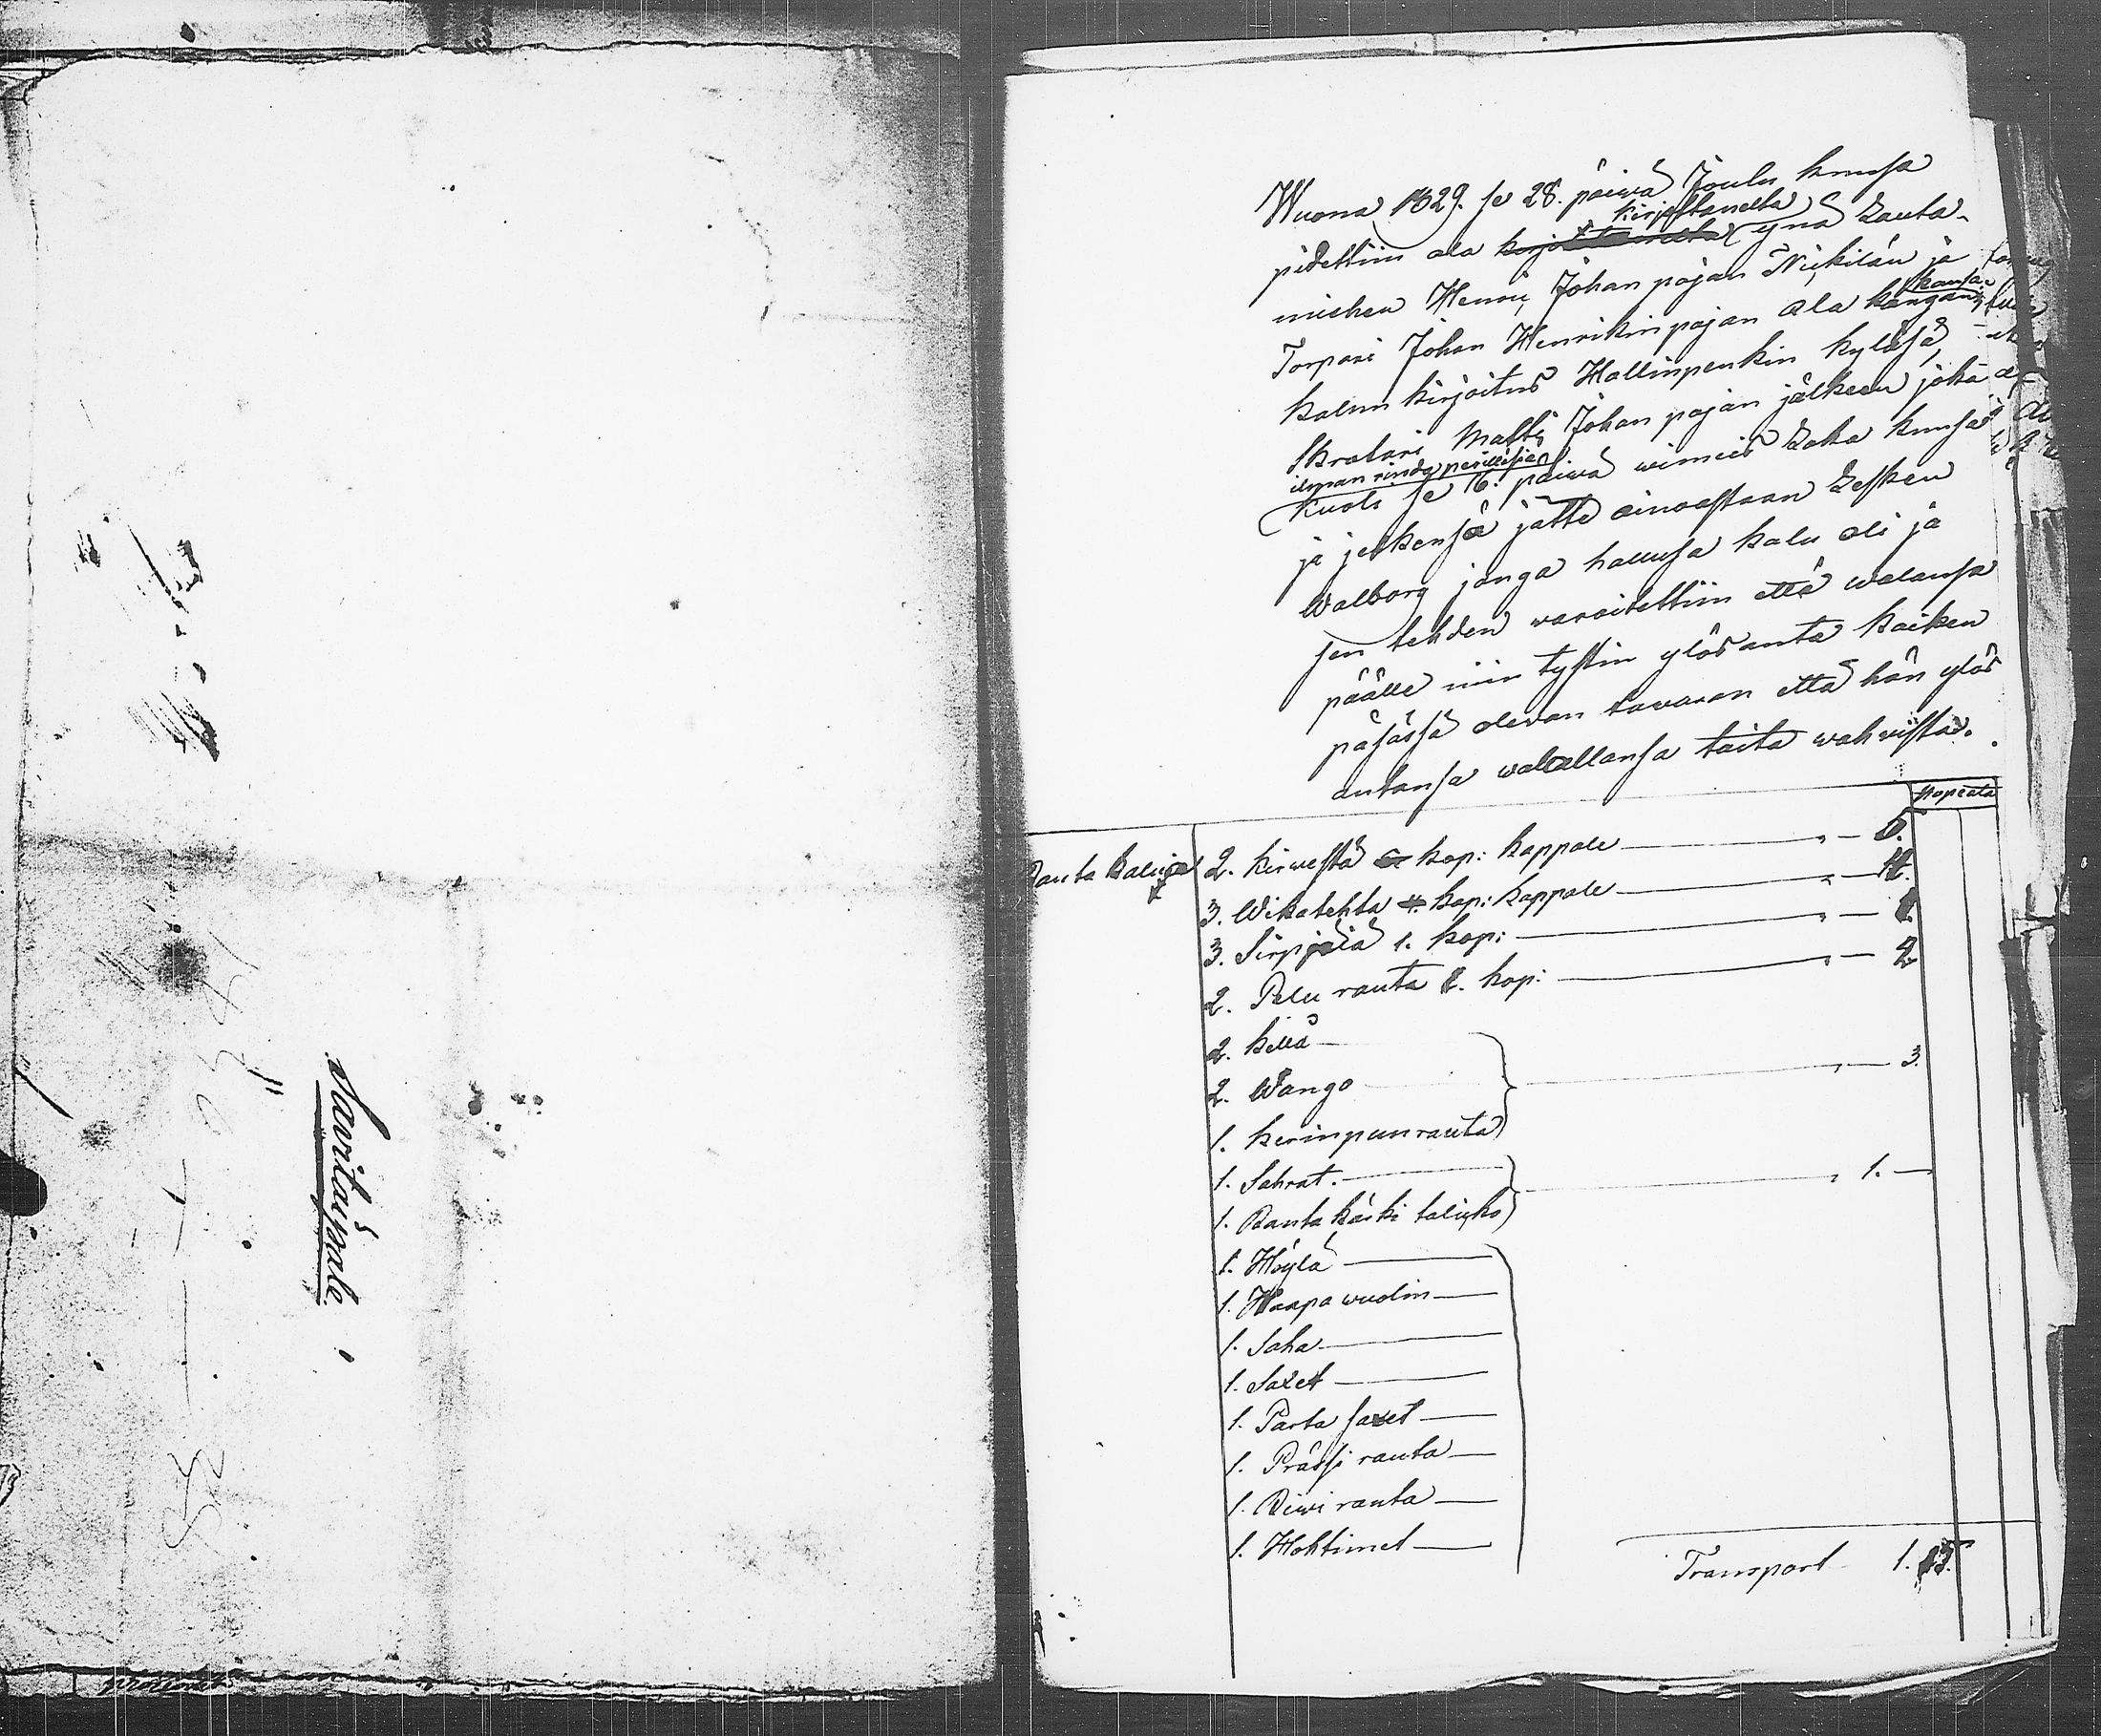 Savitaipale
Wuona 1829. se 28. päiwä Joulu kuusa
pidettiin ala kirjoittanelta kirjoittanelta synä Lauta-
miehen Henric Johan pojan Nickilän ja
Torpari Johan Henrikin pojan Ala kangan kansa
kalun kirjoitus Hallinpenkin kyläsä,
Skratari Matti Johan pojan jälkeen joka
ilman rinda perillisiä
kuoli se 16. päiwä wimeis Loka kuusa
ja jelkensä jätti ainoastaan Lesken
Walborg jonga hallusa kalu oli ja
sen tehden waroitettiin että walansa
päälle niin tystin ylös anta kaiken
päsässä olewan tawaran että hän ylös
antansa walallansa taita wahwista.
Hopeata
Rauta Kaluja 2. Kirwestä kop: kappale — 6.
3. Wikatehta 4. kop: kappale — 12.
3. Sirpiä 1. kop: —
2. Pelu rauta 2. kop: — 4
2. Kellä —
2. Wango — 3.
1. Kerinpuun rauta
1. Sahrat. — 1. —
1. Rauta käski talicko
1. Höylä —
1. Haapa wuolin —
1. Saha —
1. Saxet —
1. Parta saxet —
1. Prässi rauta —
1. Riwi rauta —
1. Hohtimet —
Transport 1.